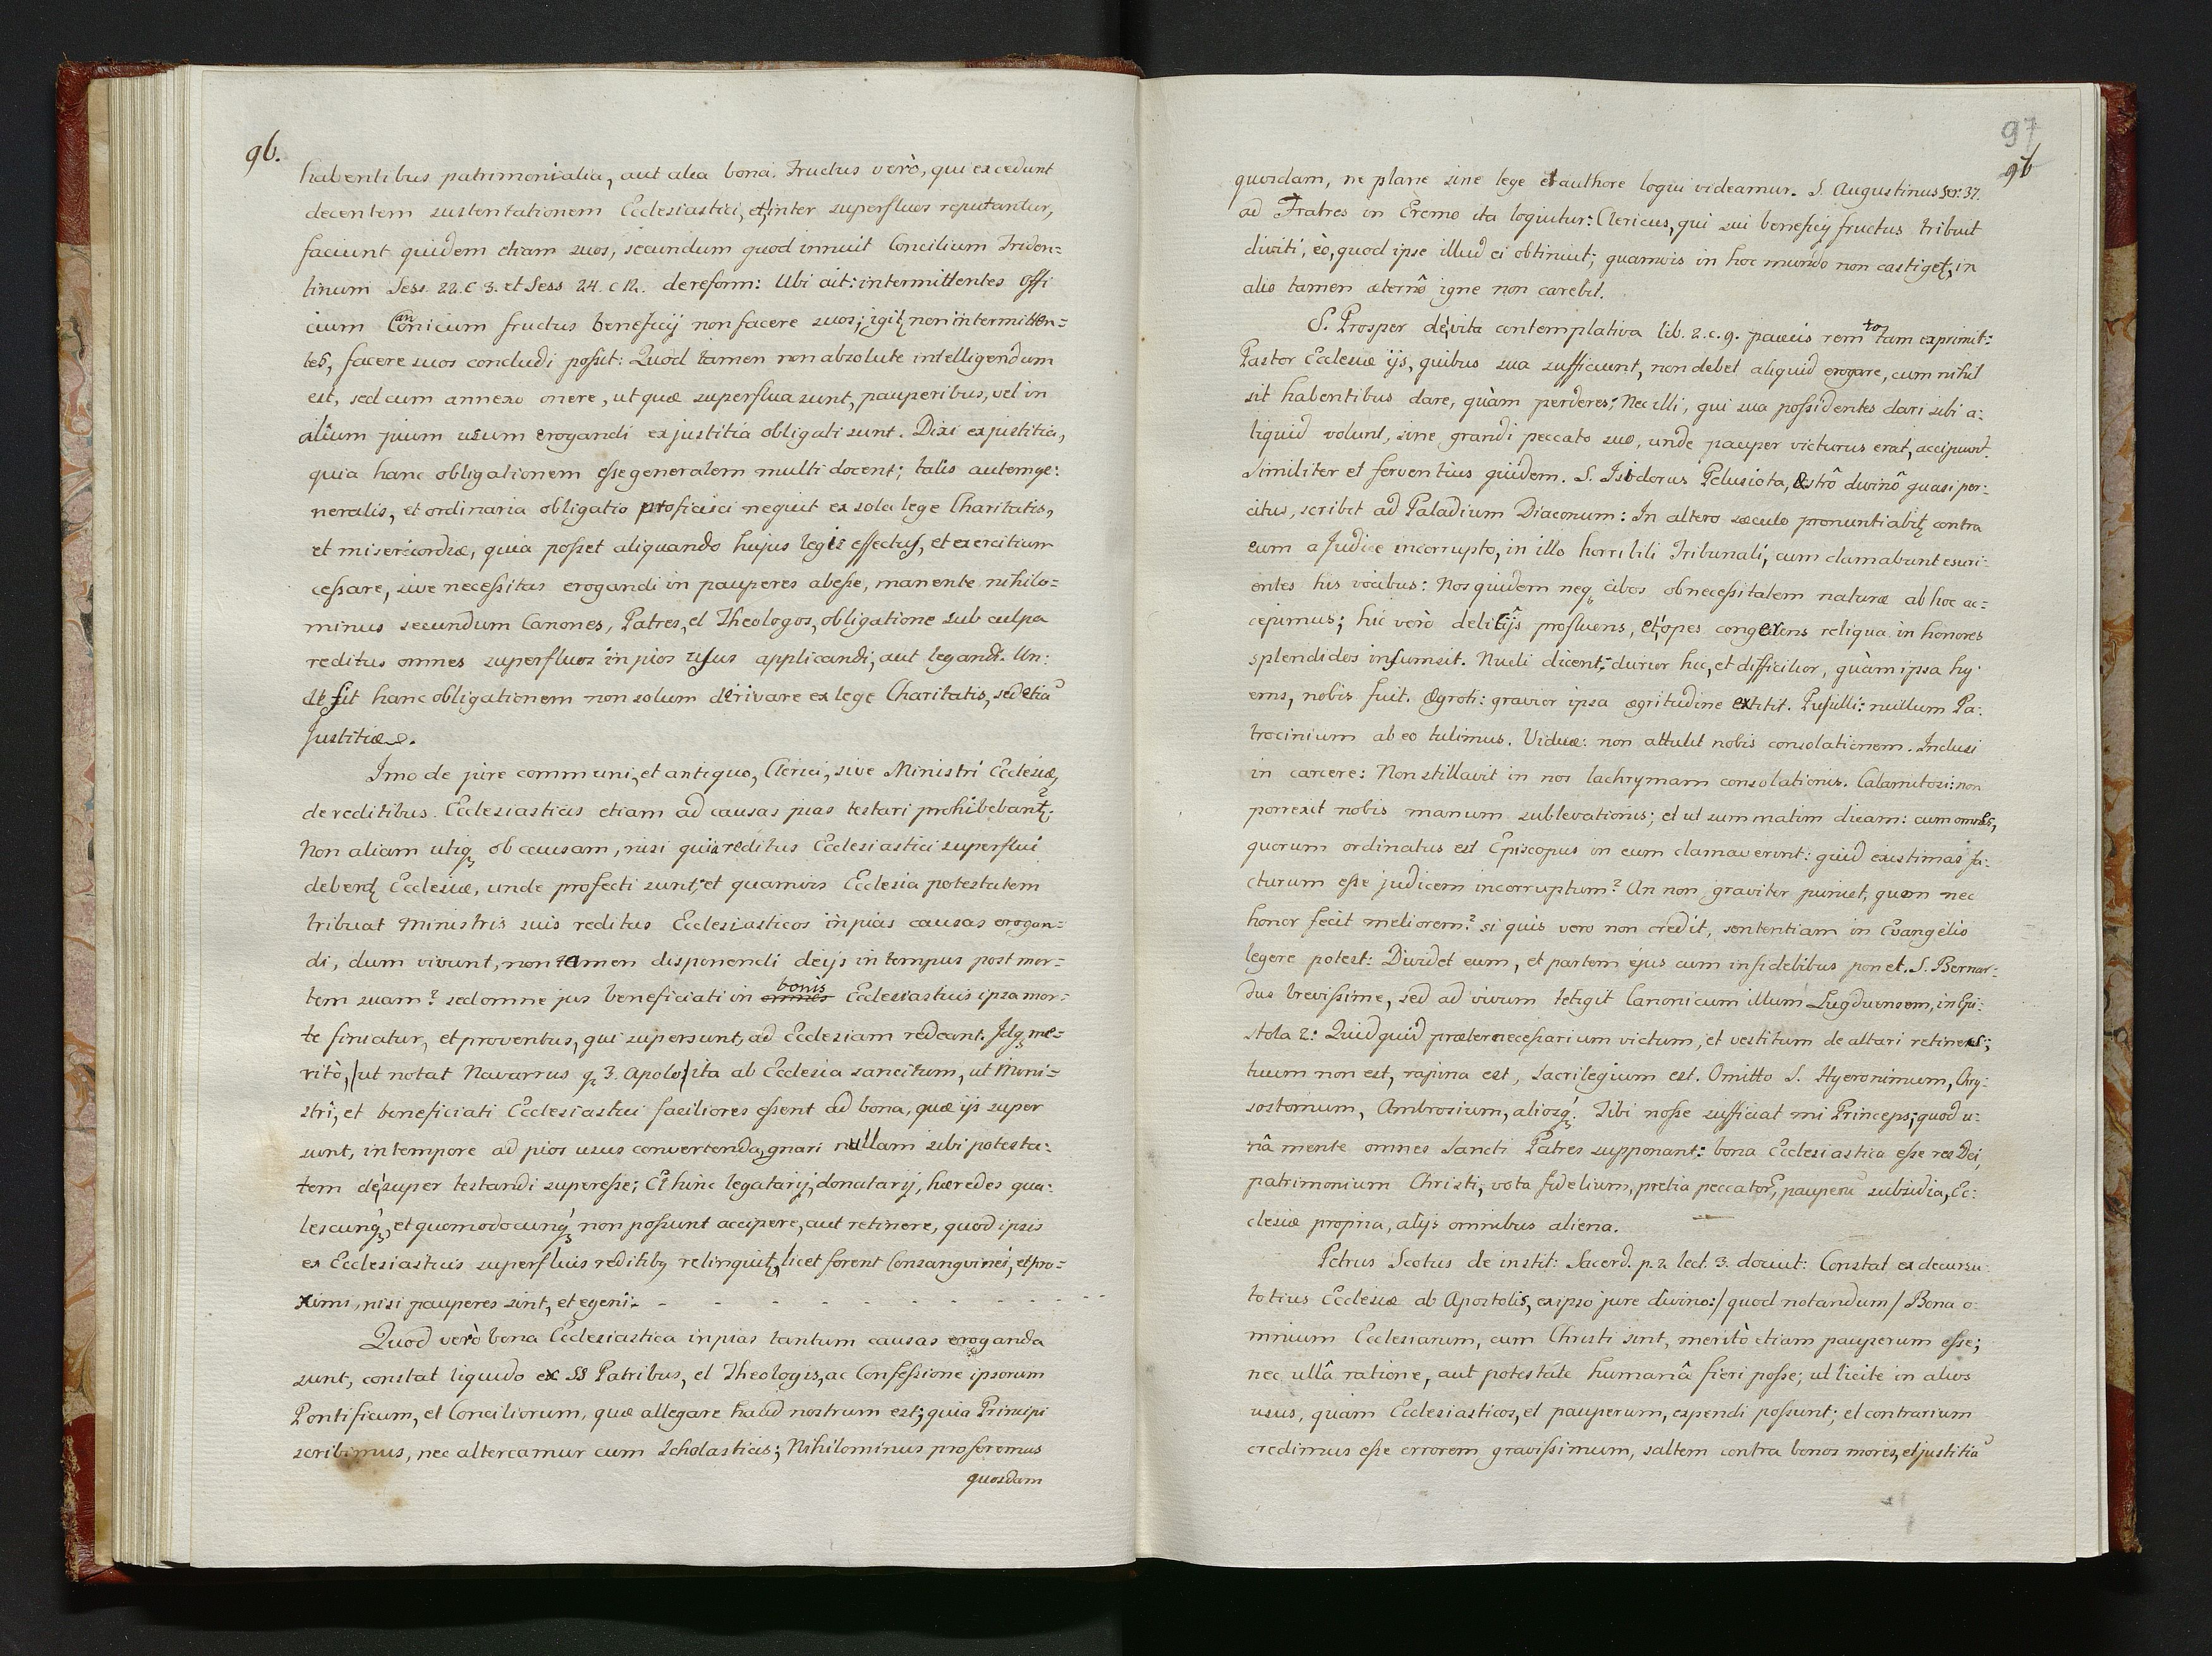 96.
habentibus patrimonialia, aut alia bona. Fructus verò, qui excedunt
decentem sustentationem Ecclesiastici, et inter superfluos reputantur,
faciunt quidem etiam suos, secundum quod innuit Concilium Triden=
tinum Sess. 22. c 3. et Sess 24. c 12. de reform: Ubi ait: intermittentes Offi
cium Canonicum fructus beneficij non facere suos; igitr non intermitten=
tes, facere suos concludi possit: Quod tamen non absolute intelligendum
est, sed cum annexo onere, ut quæ superflua sunt, pauperibus, vel in
alium pium usum erogandi ex justitia obligati sunt. Dixi ex justitia,
quia hanc obligationem esse generalem multi docent; talis autem ge:
neralis, et ordinaria obligatio proficisci nequit ex sola lege Charitatis,
et misericordiæ, quia posset aliquando hujus legis effectus, et exercitium
cessare, sive necessitas erogandi in pauperes abesse, manente nihilo=
minus secundum Canones, Patres, et Theologos, obligatione sub culpa
reditus omnes superfluos in pios usus applicandi, aut legandi. Un:
de fit hanc obligationem non solum derivare ex lege Charitatis, sed etiã
Justitiæ.
Imo de jure communi, et antiquo, Clerici, sive Ministri Ecclesiæ,
de reditibus Ecclesiasticis etiam ad causas pias testari prohibebantr:
Non aliam utiq ob causam, nisi quia reditus Ecclesiastici superflui
debentr Ecclesiæ, unde profecti sunt; et quamvis Ecclesia potestatem
tribuat Ministris suis reditus Ecclesiasticos in pias causas erogan=
di, dum vivunt, non tamen disponendi de ijs in tempus post mor=
tem suam? sed omne jus beneficiati in omnes bonis Ecclesiasticis ipsa mor=
te finiatur, et proventus, qui supersunt, ad Ecclesiam redeant. Idq me=
ritò, /ut notat Navarrus q 3. Apolo/ ita ab Ecclesia sancitum, ut Mini=
stri, et beneficiati Ecclesiastici faciliores essent ad bona, quæ ijs super
sunt, in tempore ad pios usus convertenda, gnari nullam sibi potesta=
tem desuper testandi superesse; Et hinc legatarij, donatarij, hæredes qua=
lescunq, et quomodocunq non possunt accipere, aut retinere, quod ipsis
ex Ecclesiasticis superfluis reditibq relinquitr, licet forent Consangvinei, et pro=
ximi, nisi pauperes sint, et egeni. - - - - - - - - -
Quod verò bona Ecclesiastica in pias tantum causas eroganda
sunt, constat liquido ex SS Patribus, et Theologis, ac Confessione ipsorum
Pontificum, et Conciliorum, quæ allegare haud nostrum est; quia Principi
scribimus, nec altercamur cum Scholasticis; Nihilominus proferemus
quosdam
97
96
quosdam, ne plane sine lege et authore loqui videamur. S. Augustinus Ser. 37.
ad Fratres in Eremo ita loquitur: Clericus, qui sui beneficij fructus tribuit
diviti, eò, quod ipse illud ei obtinuit; quamvis in hoc mundo non castigetr, in
alio tamen æternô igne non carebit.
S. Prosper de vita contemplativa lib. 2. c. 9. paucis rem totam exprimit:
Pastor Ecclesiæ ijs, quibus sua sufficiunt, non debet aliquid erogare, cum nihil
sit habentibus dare, quàm perdere; Nec illi, qui sua possidentes dari sibi a:
liquid volunt, sine grandi peccato suo, unde pauper victurus erat, accipiunt.
Similiter et ferventius quidem. S. Isidorus Pelusiota, æstrô divinô quasi per:
citus, scribit ad Paladium Diaconum: In altero sæculo pronuntiabitr contra
eum a Judice incorrupto, in illo horribili Tribunali, cum clamabunt esuri:
entes his vocibus: Nos quidem neq cibos ob necessitatem naturæ ab hoc ac=
cepimus; hic verò delitijs profluens, et opes congerens reliqua in honores
splendidos insumsit. Nudi dicent; durior hic, et difficilior, quàm ipsa hy
ems, nobis fuit. Ægroti: gravior ipsa ægritudine extitit. Pusilli: nullum Pa:
trocinium ab eo tulimus. Viduæ: non attulit nobis consolationem. Inclusi
in carcere: Non stillavit in nos lachrymam consolationis. Calamitosi: non
porrexit nobis manum sublevationis; et ut summatim dicam: cum omnes,
quorum ordinatus est Episcopus in eum clamaverint: quid existimas fa:
cturum esse judicem incorruptum? An non graviter puniet, quem nec
honor fecit meliorem? si quis vero non credit, sententiam in Evangelio
legere potest: Dividet eum, et partem ejus cum infidelibus ponet. S. Bernar:
dus brevissime, sed ad vivum tetigit Canonicum illum Lugdunensem, in Epi:
stola 2: Quidquid præter necessarium victum, et vestitum de altari retines;
tuum non est, rapina est, sacrilegium est. Omitto S. Hyeronimum, Chry:
sostomum, Ambrosium, aliosq. Tibi nosse sufficiat mi Princeps; quod u:
nâ mente omnes Sancti Patres supponant: bona Ecclesiastica esse res Dei,
patrimonium Christi, vota fidelium, pretia peccator, pauperũ subsidia, Ec:
clesiæ propria, alijs omnibus aliena.
Petrus Scotus de instit: Sacerd. p. 2 lect. 3. docuit: Constat ex decursu
totius Ecclesiæ ab Apostolis, ex ipso jure divino: /quod notandum/ Bona o=
mnium Ecclesiarum, cum Christi sint, meritò etiam pauperum esse;
nec ullâ ratione, aut potestate humanâ fieri posse; ut licite in alios
usus, quam Ecclesiasticos, et pauperum, expendi possunt; et contrarium
credimus esse errorem gravissimum, saltem contra bonos mores, et justitiã